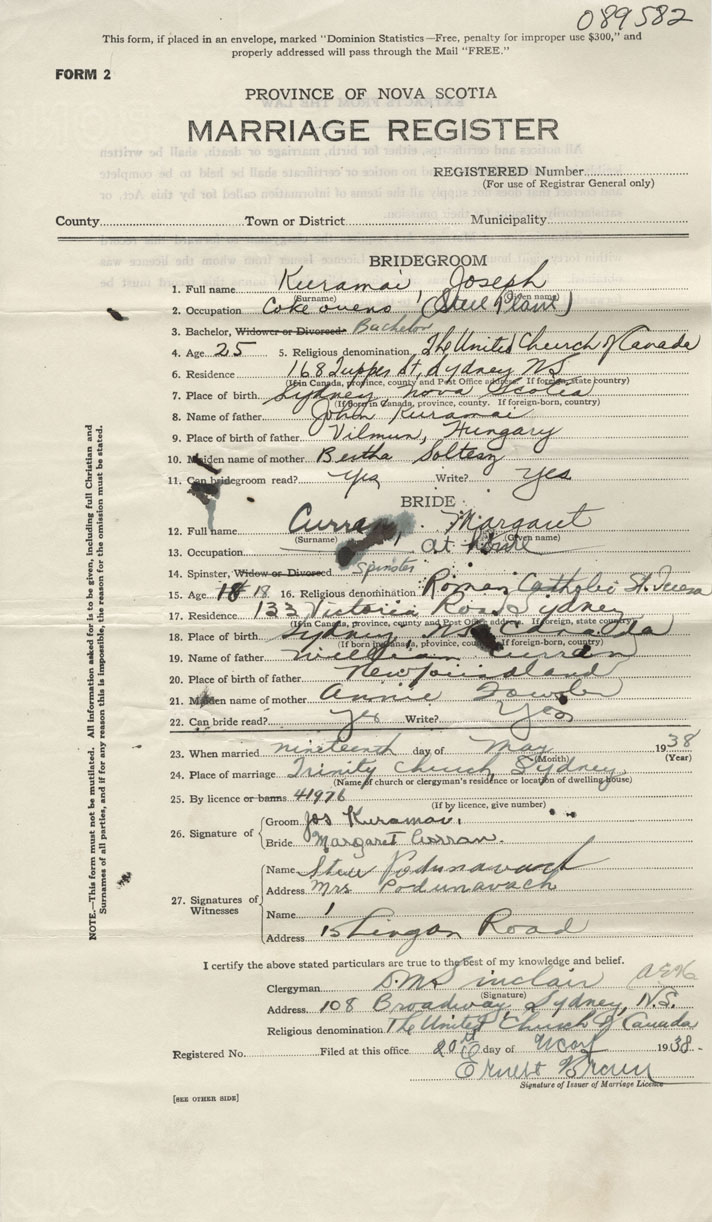 089582
This form, if placed in an envelope, marked "Dominion Statistics—Free, penalty for improper use $300," and
properly addressed will pass through the Mail "FREE."
FORM 2
PROVINCE OF NOVA SCOTIA
MARRIAGE REGISTER
REGISTERED Number
(For use of Registrar General only)
County Town or District Municipality
BRIDEGROOM
1. Full name Kuramai, Joseph
(Surname) (Given name)
2. Occupation Coke ovens (Steel Plant)
3. Bachelor, Widower or Divorced Bachelor
4. Age 25 5. Religious denomination The United Church of Canada
6. Residence 168 Tupper St, Sydney NS
(If in Canada, province, county and Post Office address. If foreign, state country)
7. Place of birth Sydney Nova Scotia
(If born in Canada, province, county. If foreign-born, country)
8. Name of father John Kuramai
9. Place of birth of father Vilmun, Hungary
10. Maiden name of mother Bertha Soltesz
11. Can bridegroom read? Yes Write? Yes
BRIDE
12. Full name Curran, Margaret
(Surname) (Given name)
13. Occupation at Home
14. Spinster, Widow or Divorced Spinster
15. Age 18 18 16. Religious denomination Roman Catholic St. Teresa
17. Residence 133 Victoria Road Sydney
(If in Canada, province, county and Post Office address. If foreign, state country)
18. Place of birth Sydney, NS Canada
(If born in Canada, province, county. If foreign-born, country)
19. Name of father William Curran
20. Place of birth of father Newfoundland
21. Maiden name of mother Annie Fowler
22. Can bride read? Yes Write? Yes
23. When married nineteenth day of May 1938
(Month) (Year)
24. Place of marriage Trinity Church, Sydney
(Name of church or clergyman's residence or location of dwelling house)
25. By licence or banns 41976
(If by licence, give number)
26. Signature of
Groom Jos Kuramai.
Bride Margaret Curran.
27. Signatures of Witnesses
Name Steve Podunavach
Address Mrs Podunavach
Name
Address 15 Lingan Road
I certify the above stated particulars are true to the best of my knowledge and belief.
Clergyman D.M. Sinclair
(Signature)
Address 108 Broadway, Sydney, N.S.
Religious denomination The United Church of Canada
Registered No. Filed at this office 20th day of May 1938.
Ernest Brown
Signature of Issuer of Marriage Licence
[SEE OTHER SIDE]
NOTE.—This form must not be mutilated. All information asked for is to be given, including full Christian and
Surnames of all parties, and if for any reason this is impossible, the reason for the omission must be stated.